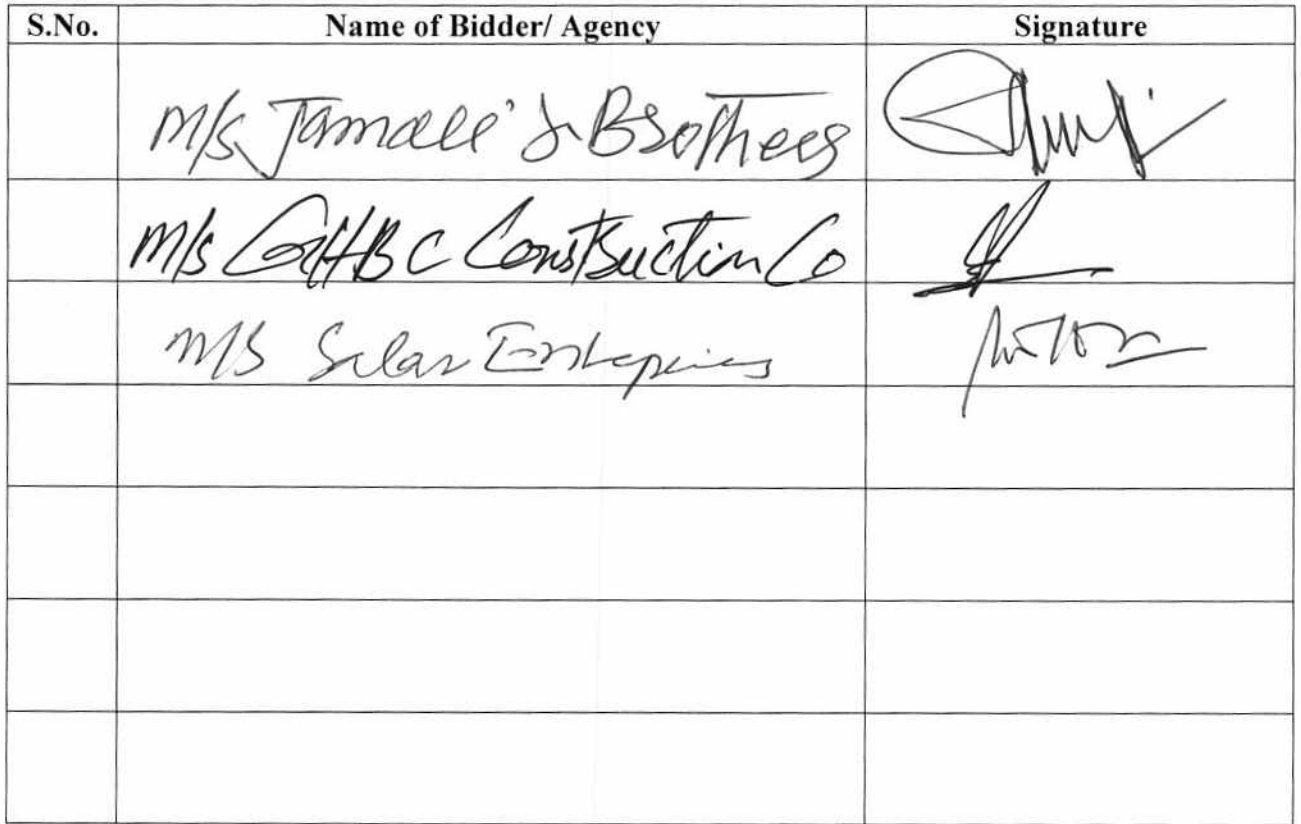 S.No. Name of Bidder/ Agency Signature
M/s Jamali & Brothers
M/s GHBC Construction Co
M/s Salar Enterprises